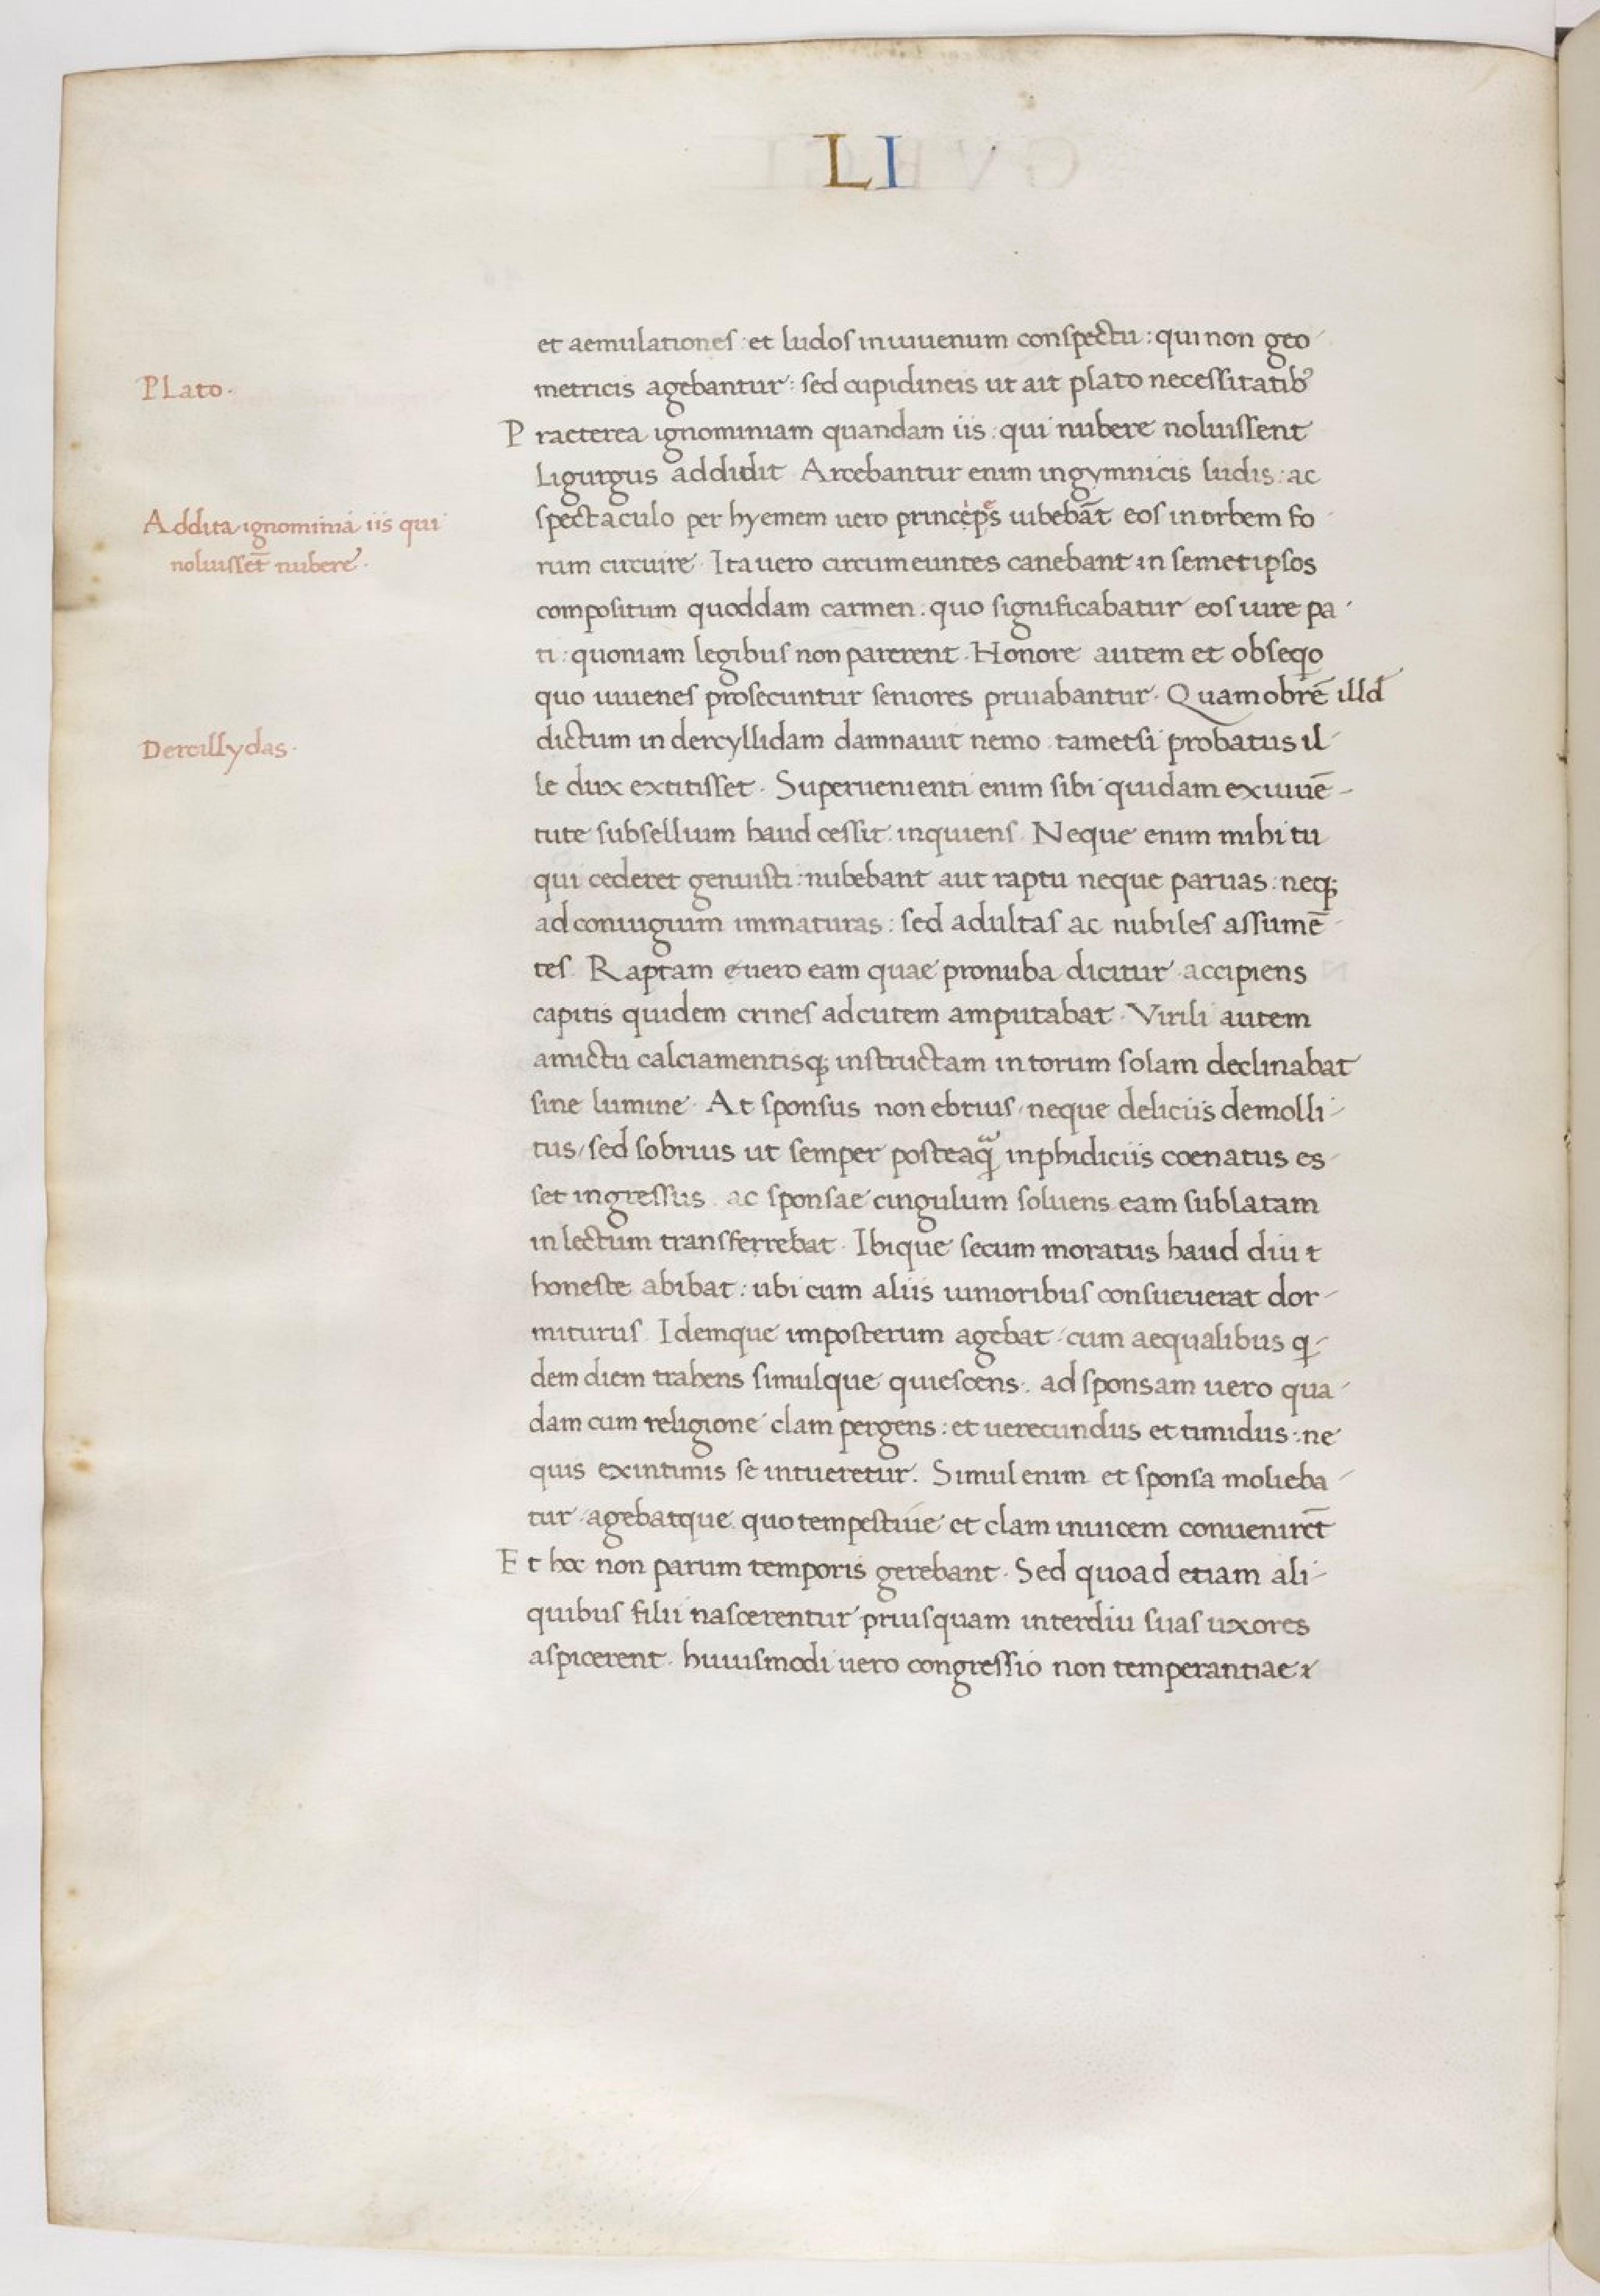 LI
et aemulationes et ludos in iuuenum conspectu : qui non geo
Plato.
metricis agebantur : sed cupidineis ut ait plato necessitatib᷒
Praeterea ignominiam quandam iis : qui nubere noluissent
Ligurgus addidit Arcebantur enim in gymnicis ludis : ac
Addita ignominiā iis qui
noluissēt nubere.
spectaculo per hyemem uero princeps iubebāt eos in orbem fo
rum circuire. Ita uero circumeuntes canebant in semetipsos
compositum quoddam carmen : quo significabatur eos iure pa
ti : quoniam legibus non parerent. Honore autem et obseqo
quo iuuenes prosecuntur seniores priuabantur. Quamobrē illd
Dercillydas.
dictum in dercyllidam damnauit nemo tametsi probatus il
le dux extitisset. Superuenienti enim sibi quidam ex iuuē
tute subsellium haud cessit inquiens Neque enim mihi tu
qui cederet genuisti : nubebant aut raptu neque paruas : neq;
ad coniugium immaturas : sed adultas ac nubiles assumē
tes. Raptam uero eam quae pronuba dicitur accipiens
capitis quidem crines ad cutem amputabat. Virili autem
amictu calciamentisq; instructam in torum solam declinabat
sine lumine. At sponsus non ebrius / neque deliciis demolli
tus / sed sobrius ut semper posteaqᷓ in phidiciis coenatus es
set ingressus ac sponsae cingulum soluens eam sublatam
in lectum transferrebat. Ibique secum moratus haud diu τ
honeste abibat : ubi cum aliis iunioribus consueuerat dor
miturus. Idemque imposterum agebat cum aequalibus q
dem diem trahens simulque quiescens. ad sponsam uero qua
dam cum religione clam pergens : et uerecundus et timidus : ne
quis ex intimis se intueretur. Simul enim et sponsa molieba
tur agebatque quo tempestiuie et clam inuicem conuenirēt
Et hoc non parum temporis gerebant. Sed quoad etiam ali
quibus filii nascerentur priusquam interdiu suas uxores
aspicerent. huiusmodi uero congressio non temperantiae τ